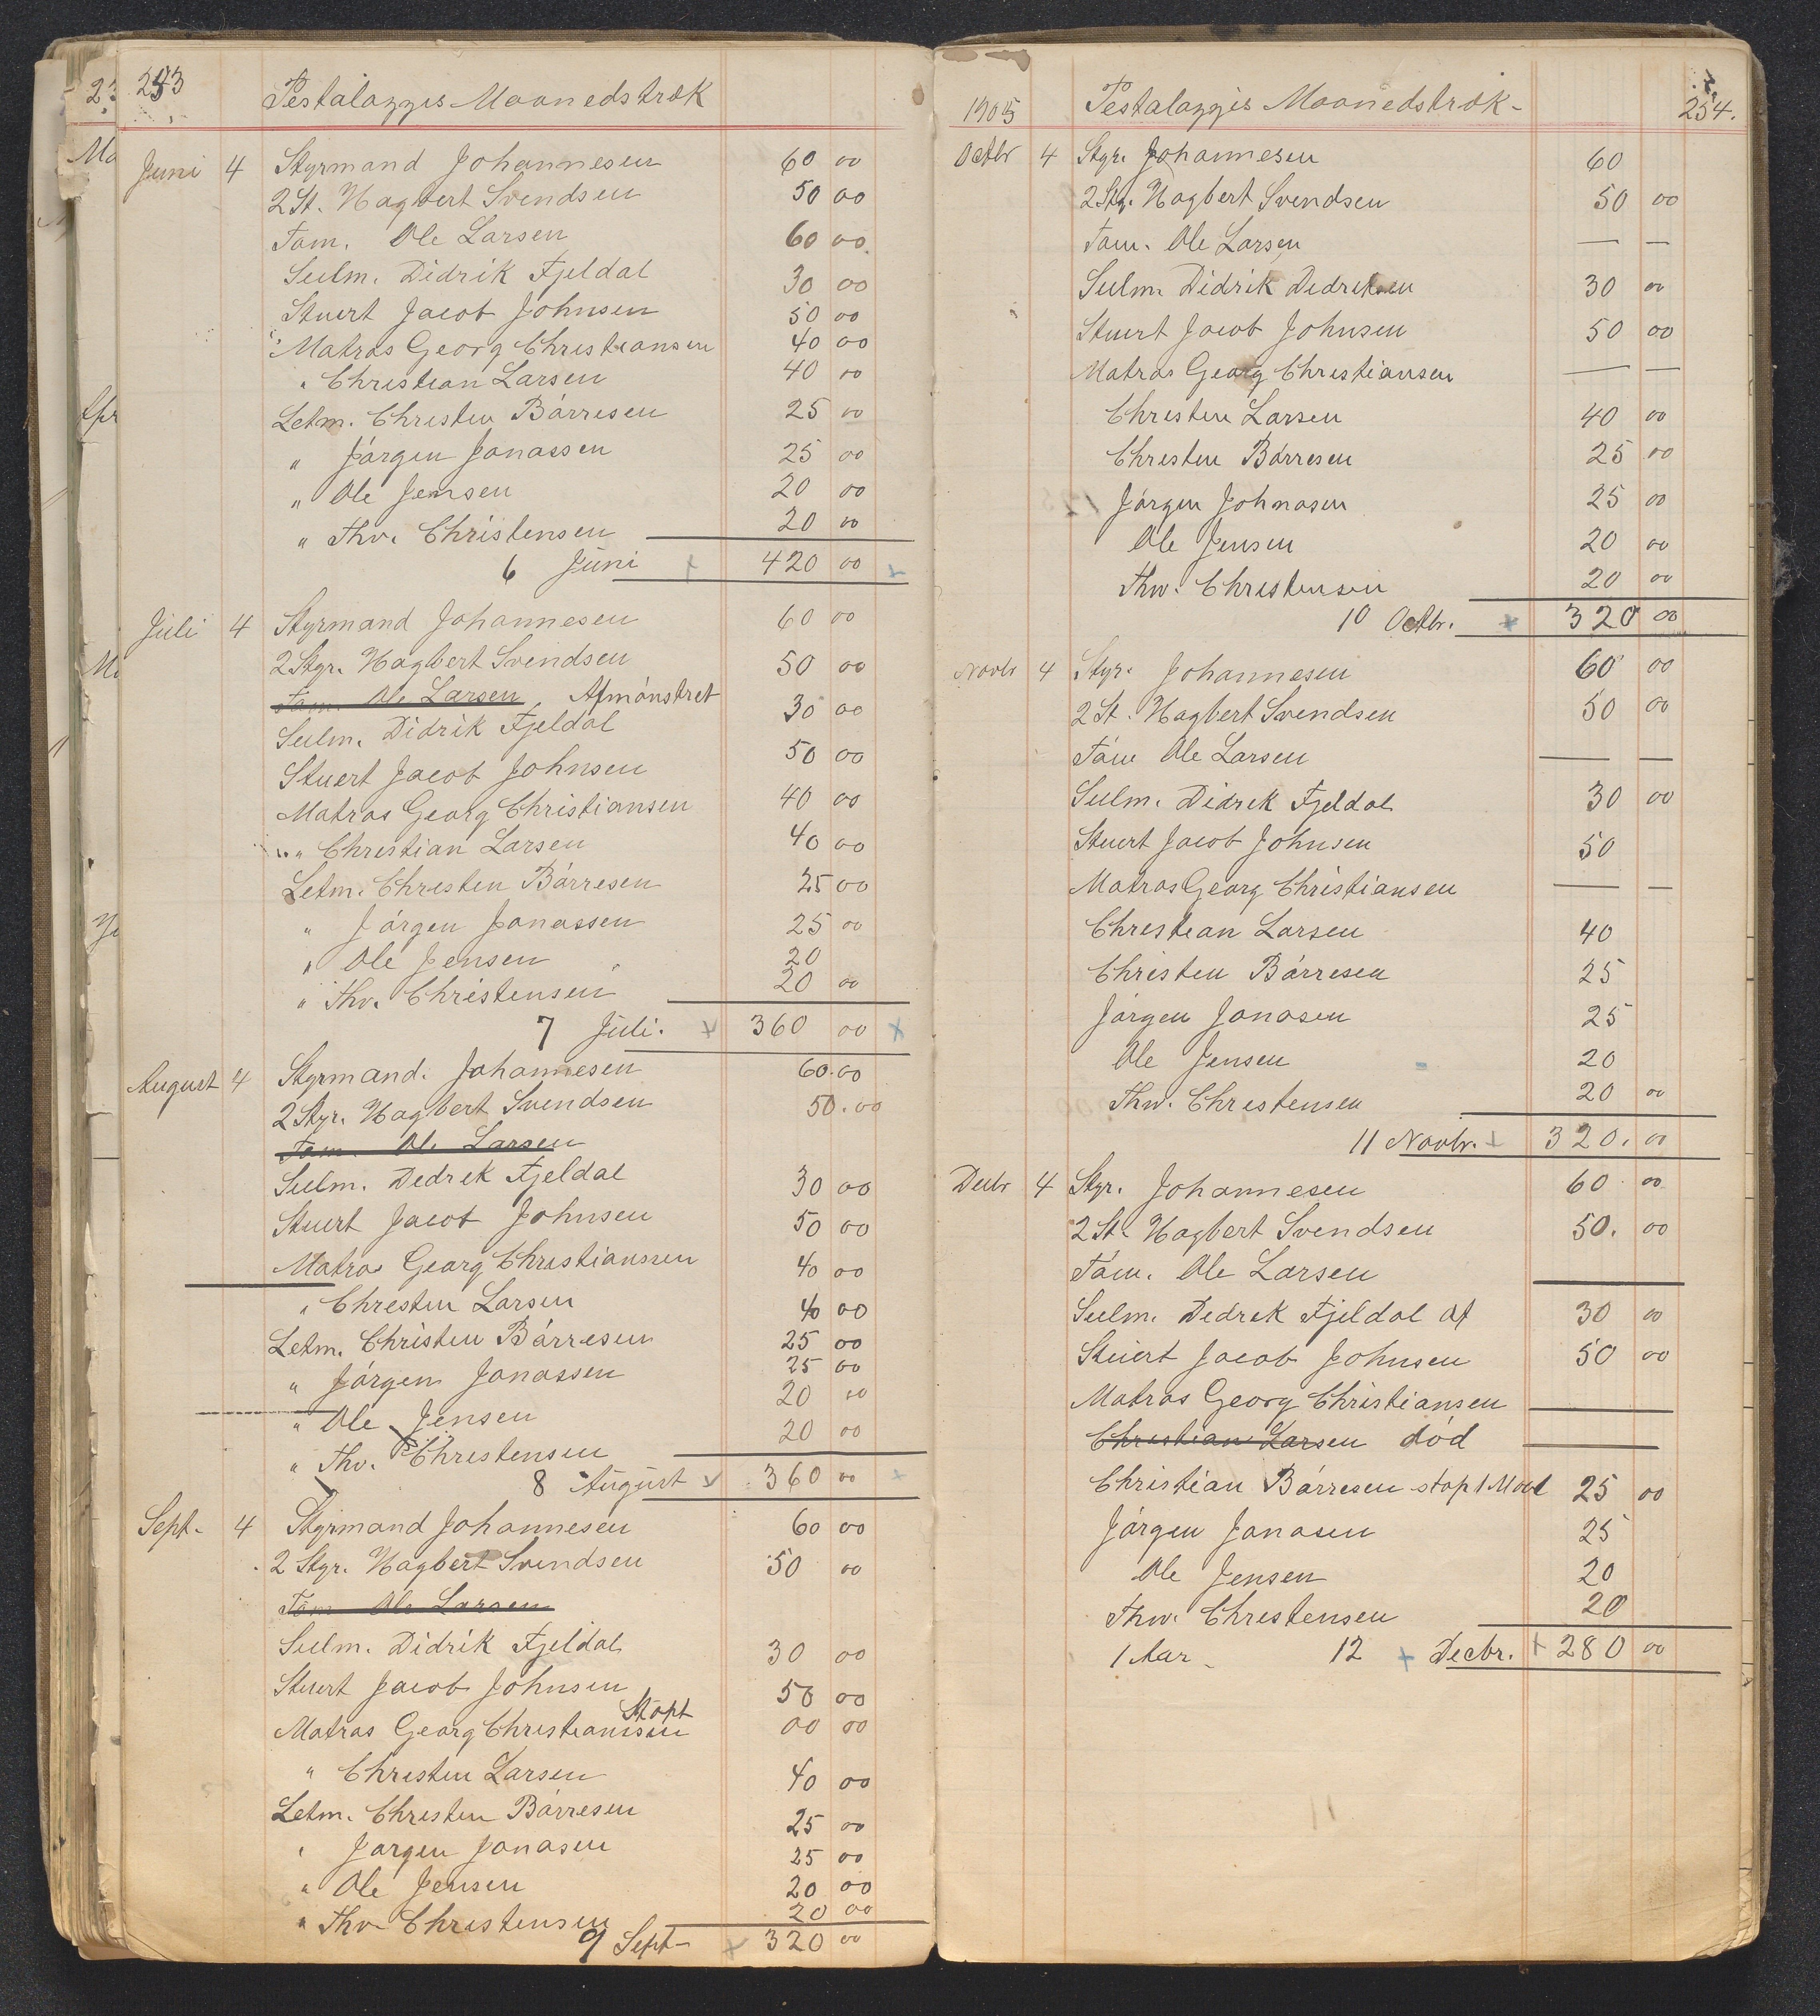 253
Pestalazzis Maanedstræk
Juni 4 Styrmand Johannesen 60 00
2 St. Hagbert Svendsen 50 00
Tøm. Ole Larsen 60 00
Seilm. Didrik Fjeldal 30 00
Stuert Jacob Johnsen 50 00
Matros Georg Christiansen 40 00
" Christian Larsen 40 00
Letm. Christen Bárresen 25 00
" Jórgen Jonassen 25 00
" Ole Jensen 20 00
" Thv. Christensen 20 00
6 Juni 420 00
Juli 4 Styrmand Johannesen 60 00
2 Styr. Hagbert Svendsen 50 00
Tøm. Ole Larsen Afmónstret
Seilm. Didrik Fjeldal 30 00
Stuert Jacob Johnsen 50 00
Matros Georg Christiansen 40 00
" Christian Larsen 40 00
Letm. Christen Bárresen 25 00
" Jórgen Jonassen 25 00
" Ole Jensen 20
" Thv. Christensen 20 00
7 Juli. 360 00
August 4 Styrmand. Johannesen 60.00
2 Styr. Hagbert Svendsen 50.00
Tøm. Ole Larsen
Seilm. Dedrek Fjeldal 30 00
Stuert Jacob Johnsen 50 00
Matros Georg Christianssen 40 00
" Chresten Larsen 40 00
Letm. Christen Bárresen 25 00
" Jórgen Jonassen 25 00
" Ole Jensen 20 00
" Thv. Christensen 20 00
8 August 360 00
Sept. 4 Styrmand Johannesen 60 00
2 Styr. Hagbert Svendsen 50 00
Tøm Ole Larsen
Seilm. Didrik Fjeldal 30 00
Stuert Jacob Johnsen 50 00
Matros Georg Christiansen Stopt 00 00
" Chresten Larsen 40 00
Letm. Christen Bárresen 25 00
" Jorgen Jonasen 25 00
" Ole Jensen 20 00
" Thv Christensen 20 00
9 Sept- 320 00
1905 Pestalazzis Maanedstræk- 254.
Octbr 4 Styr. Johannesen 60
2 Sty. Hagbert Svendsen 50 00
Tøm. Ole Larsen — —
Seilm. Didrik Dedreksen 30 00
Stuert Jacob Johnsen 50 00
Matros Georg Christiansen — —
Christen Larsen 40 00
Christen Bárresen 25 00
Jórgen Johnasen 25 00
Ole Jensen 20 00
Thv. Christensen 20 00
10 Octbr. 320 00
Novbr 4 Styr. Johannesen 60 00
2 St. Hagbert Svendsen 50 00
Tóm Ole Larsen — —
Seilm. Didrek Fjeldal 30 00
Stuert Jacob Johnsen 50
Matros Georg Christiansen — —
Chrestean Larsen 40
Christen Bárresen 25
Jórgen Jonasen 25
Ole Jensen 20
Thv. Chrestensen 20 00
11 Novbr. 320. 00
Decbr 4 Styr. Johannesen 60 00
2 St. Hagbert Svendsen 50. 00
Tóm. Ole Larsen —
Seilm. Dedrek Fjeldal af 30 00
Stuert Jacob Johnsen 50 00
Matros Georg Christiansen —
Chrestean Larsen dód —
Christian Bárresen stop 1 Maal 25 00
Jórgen Jonasen 25
Ole Jensen 20
Thv. Chrestensen 20
1 Aar - 12 Decbr. 280 00